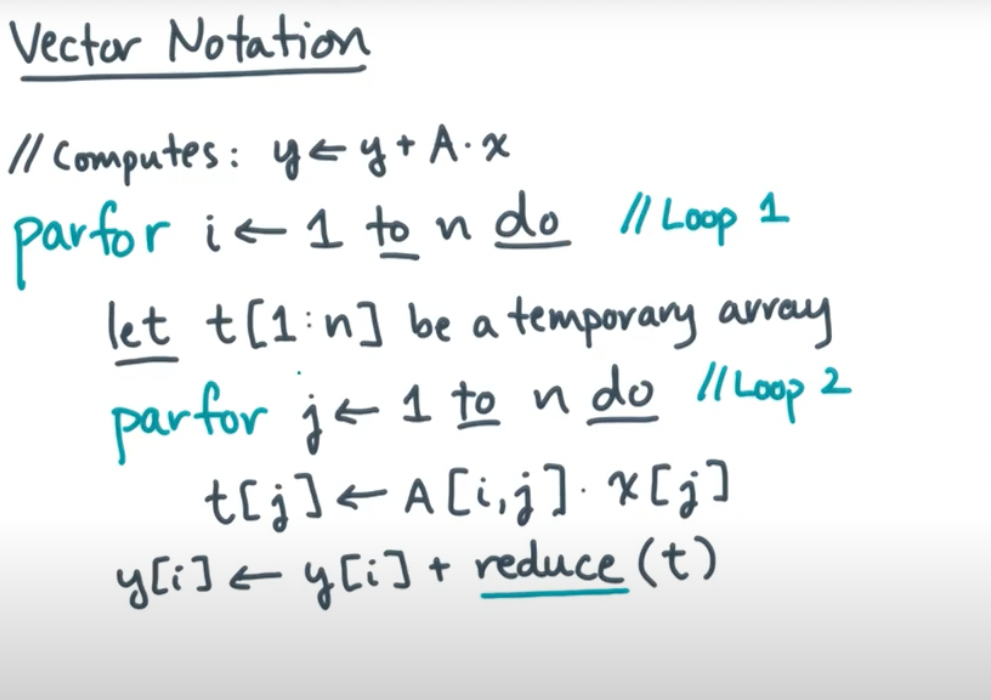 Vector Notation
// Computes: y ← y + A · x
parfor i ← 1 to n do // Loop 1
let t[1:n] be a temporary array
parfor j ← 1 to n do // Loop 2
t[j] ← A[i,j] · x[j]
y[i] ← y[i] + reduce (t)